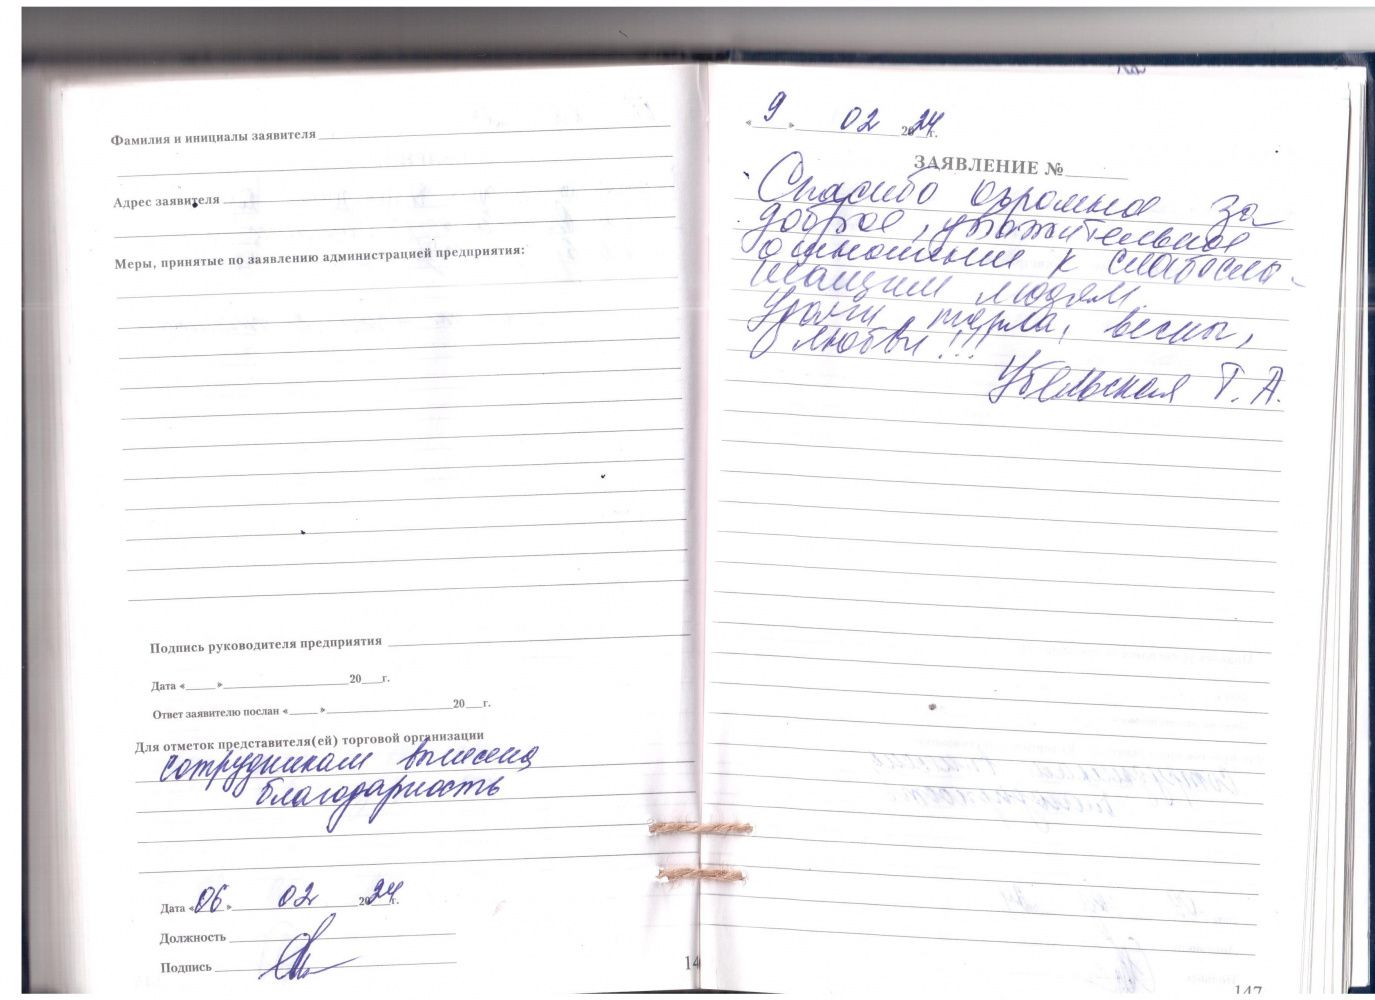 Фамилия и инициалы заявителя
Адрес заявителя
Меры, принятые по заявлению администрацией предприятия:
Подпись руководителя предприятия
Дата «____» ____ 20___г.
Ответ заявителю послан «____» ____ 20___г.
Для отметок представителя(ей) торговой организации
сотрудникам вынесена
благодарность
Дата «06» 02 2024г.
Должность
Подпись
14
«9» 02 2024г.
ЗАЯВЛЕНИЕ №
Спасибо огромное за
доброе, уважительное
отношение к слабослы-
шащим людям.
Удачи, тепла, весны,
любви!!!
Т. А.
147